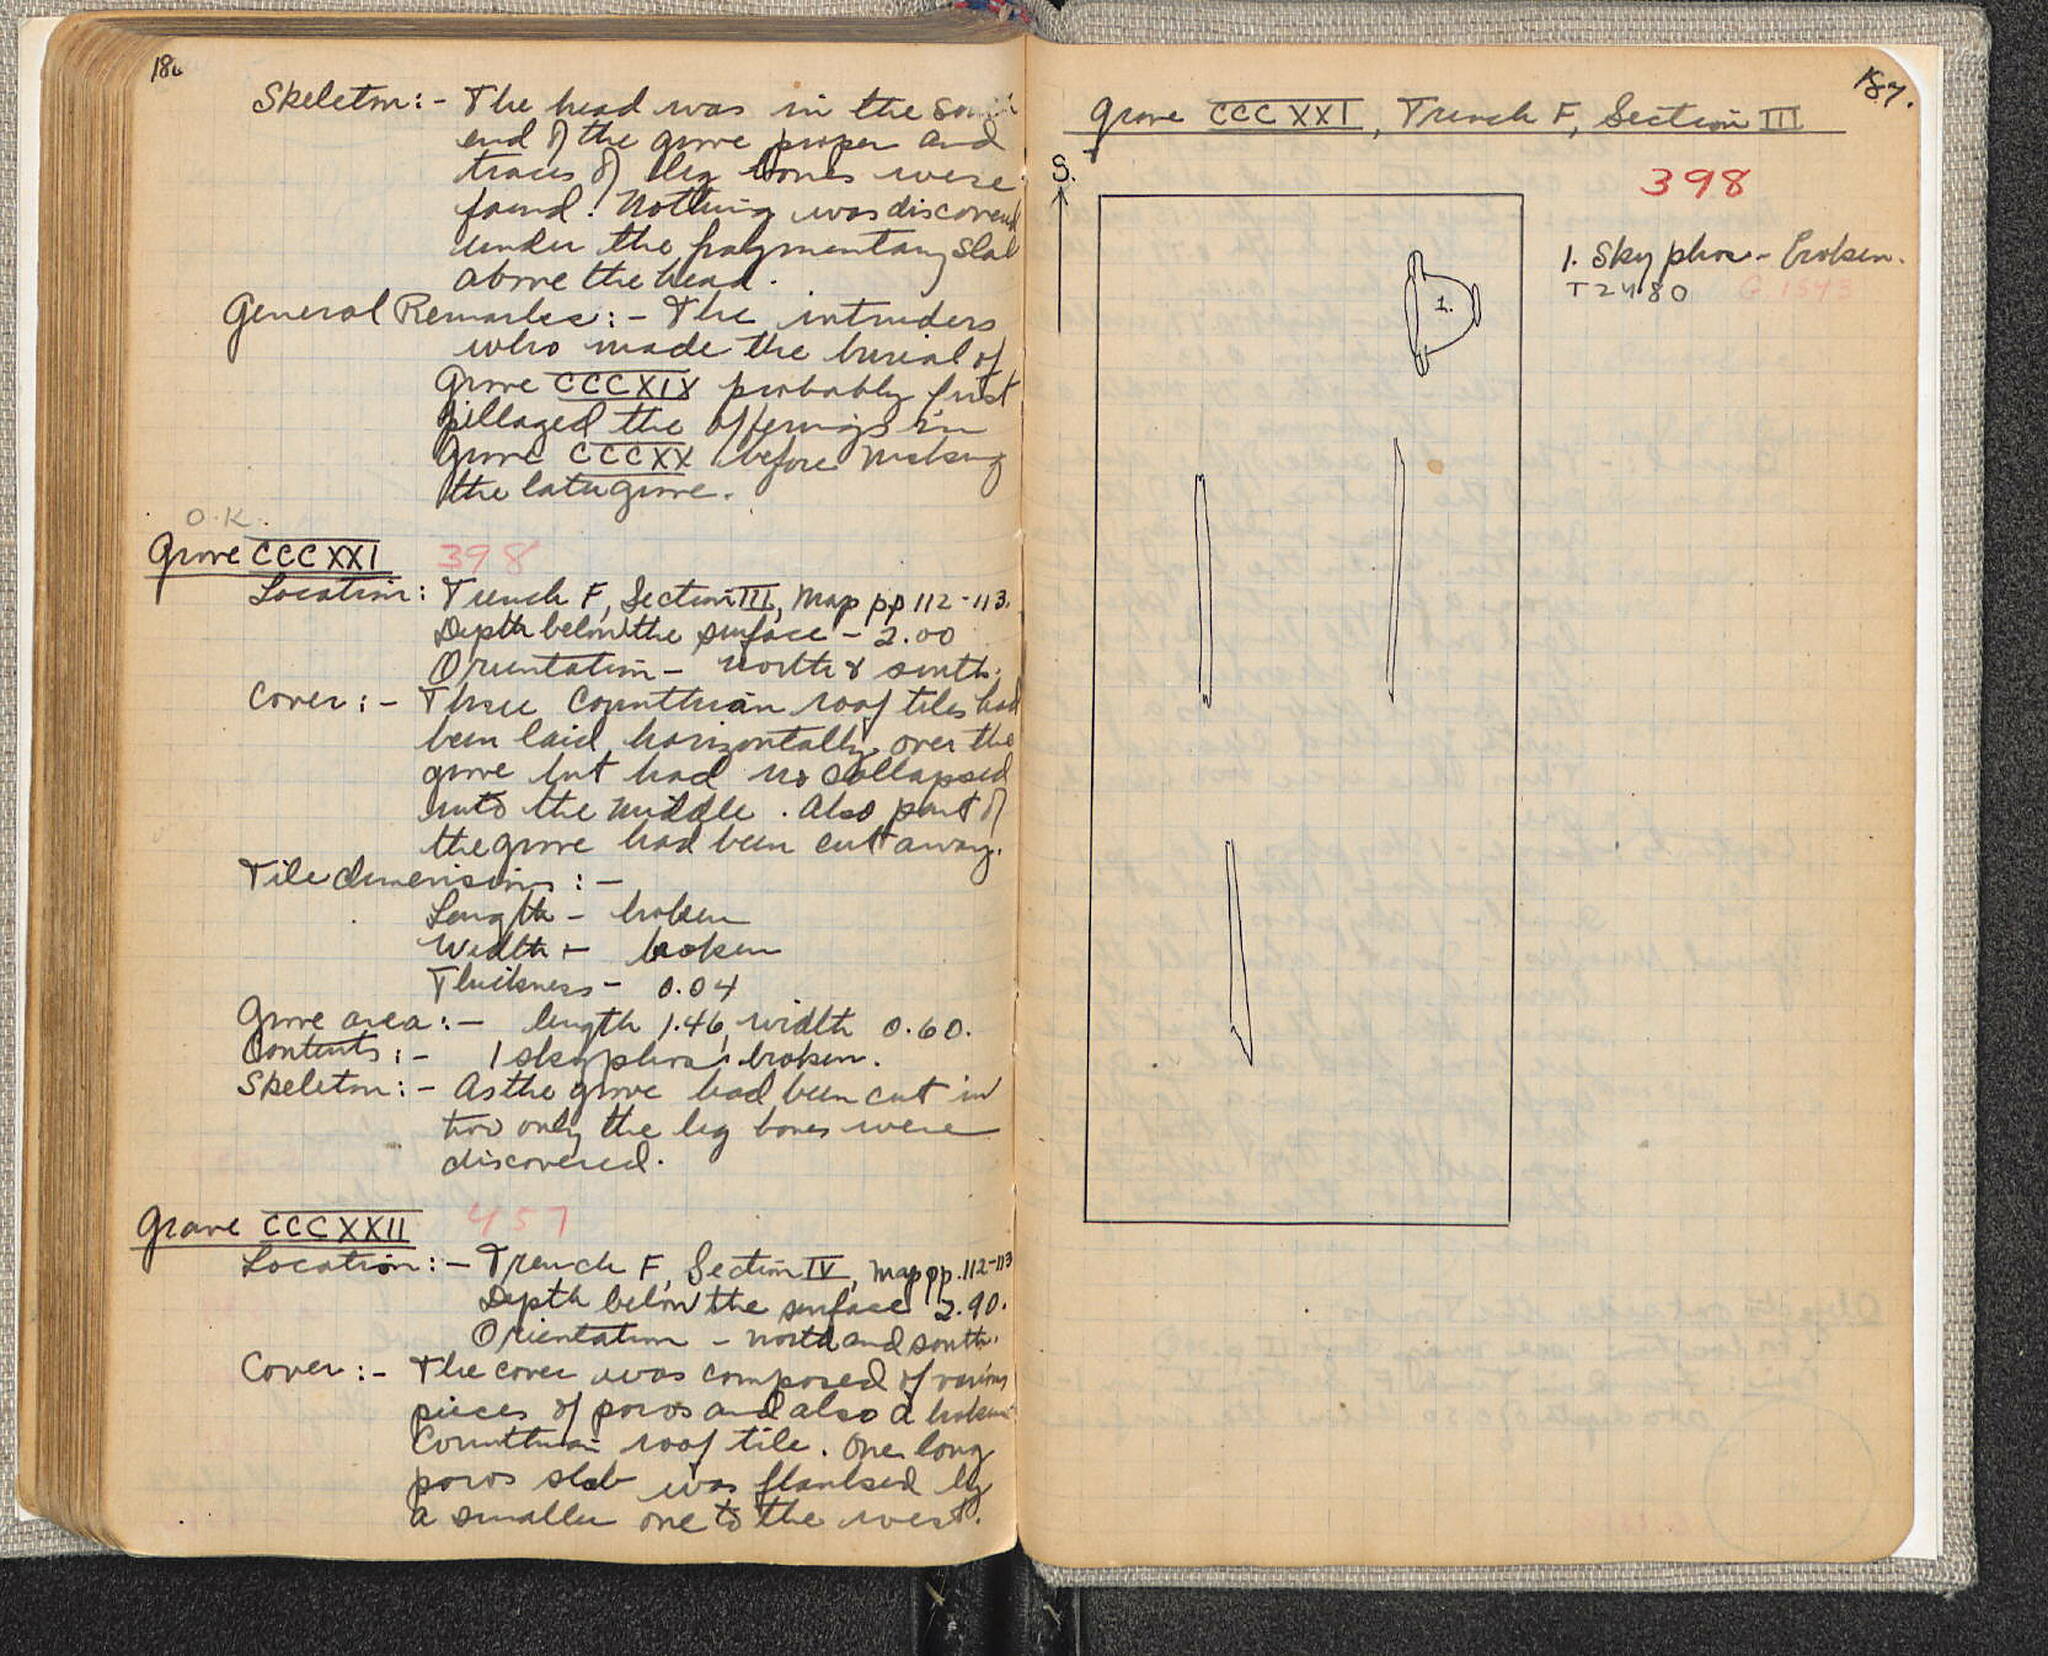 186
Skeleton:- The head was in the south
end of the grave proper and
traces of leg bones were
found. Nothing was discovered
under the fragmentary slab
above the head.
General Remarks:- The intruders
who made the burial of
Grave CCCXIX probably first
pillaged the offerings in
Grave CCCXX before making
the later grave.
O.K.
Grave CCCXXI 398
Location: Trench F, Section III, Map pp 112-113.
Depth below the surface - 2.00
Orientation - north & south.
Cover:- Three Corinthian roof tiles had
been laid horizontally over the
grave but had collapsed
into the middle. Also part of
the grave had been cut away.
Tile dimensions:-
Length - broken
Width - broken
Thickness - 0.04
Grave area:- length 1.46, width 0.60.
Contents:- 1 skyphos broken.
Skeleton:- As the grave had been cut in
two only the leg bones were
discovered.
Grave CCCXXII 457
Location:- Trench F, Section IV, Map pp. 112-113
Depth below the surface 2.90.
Orientation - north and south.
Cover:- The cover was composed of various
pieces of poros and also a broken
Corinthian roof tile. One long
poros slab was flanked by
a smaller one to the west.
187.
Grave CCCXXI, Trench F, Section III
S.
398
1. Skyphos - broken.
T2480 C 1543
1.